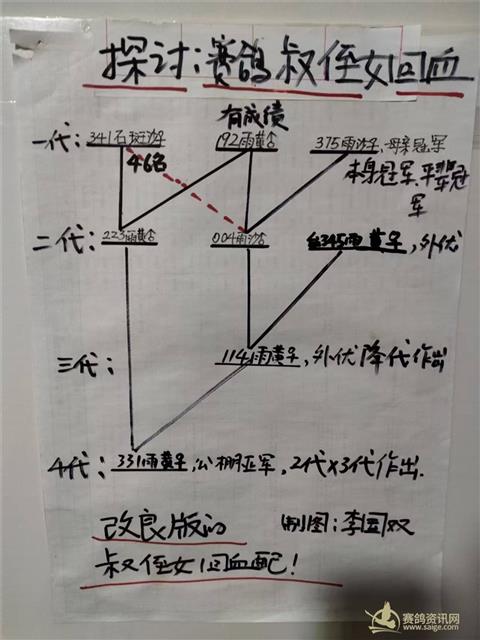 探讨:赛鸽叔侄女回血
有成绩
一代: 341石斑 192雨黄 375雨 母亲冠军
46名
本身冠军、平辈冠军
二代: 223雨黄 004雨 345雨黄, 外优
三代: 1141雨黄, 外优降代作出
4代: 331雨黄, 公棚亚军, 2代x3代作出.
改良版的 制图:李国双
叔侄女回血配!
赛鸽资讯网
www.saige.com